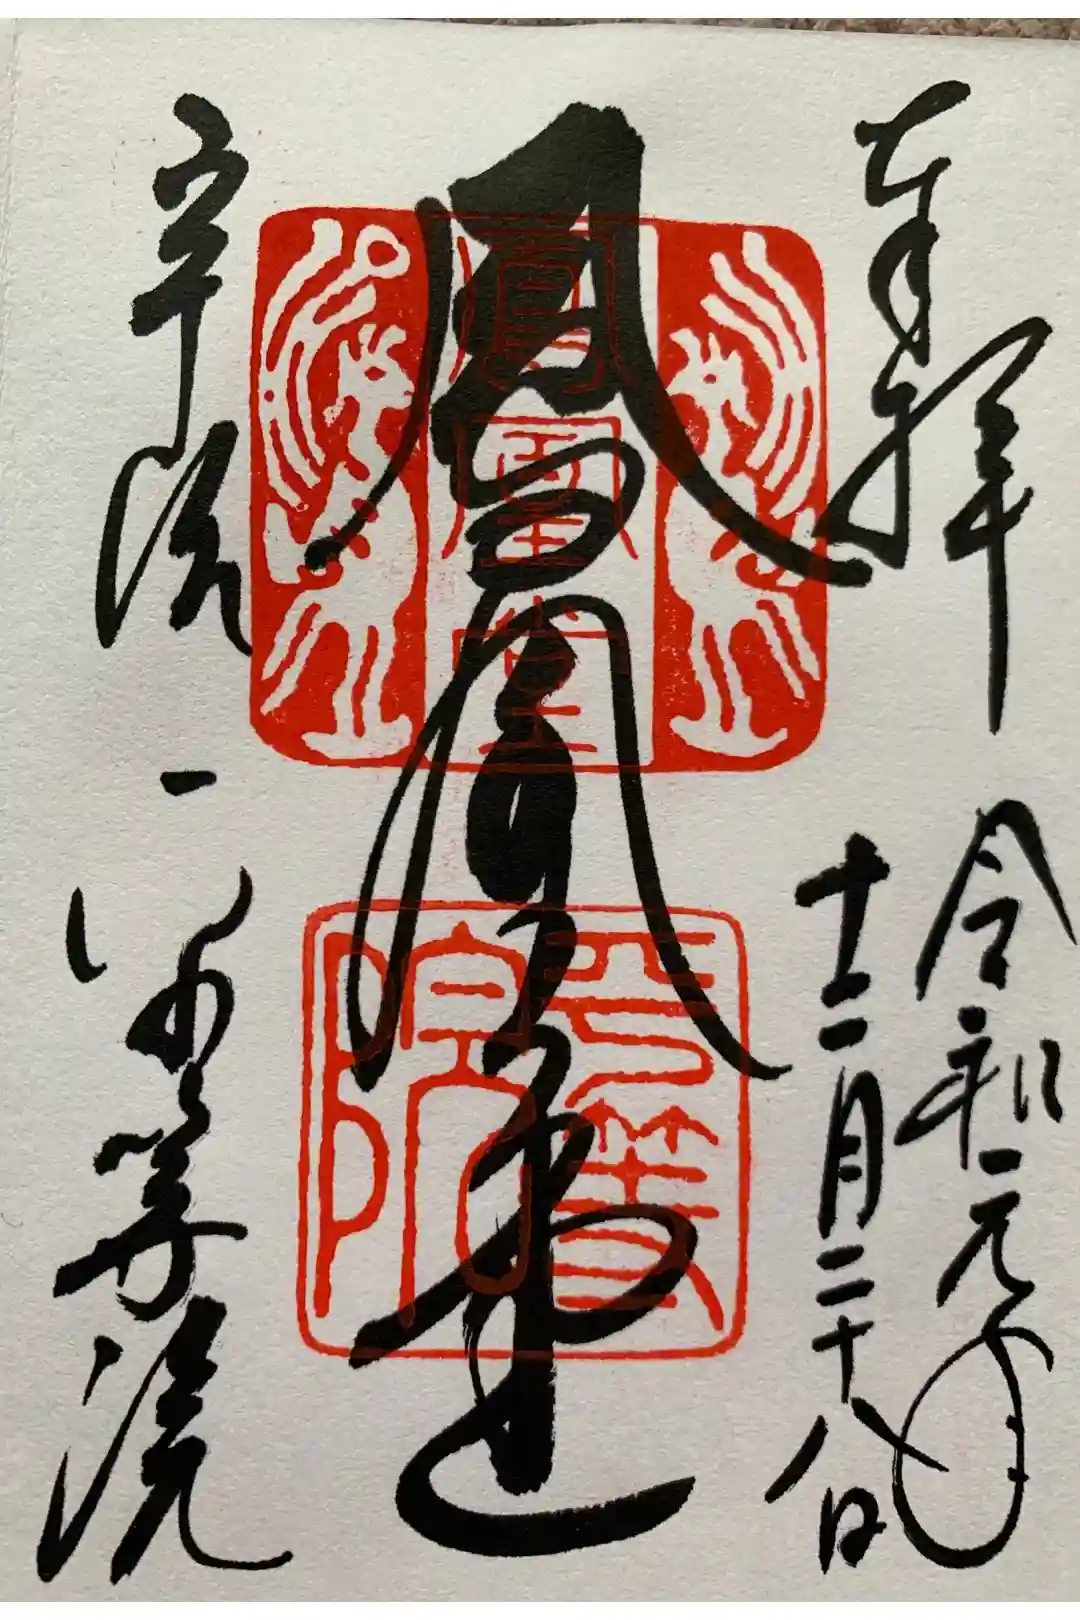 奉拝
令和元年
十二月二十八日
鳳凰堂
宇治
平等院
鳳凰堂
平等院